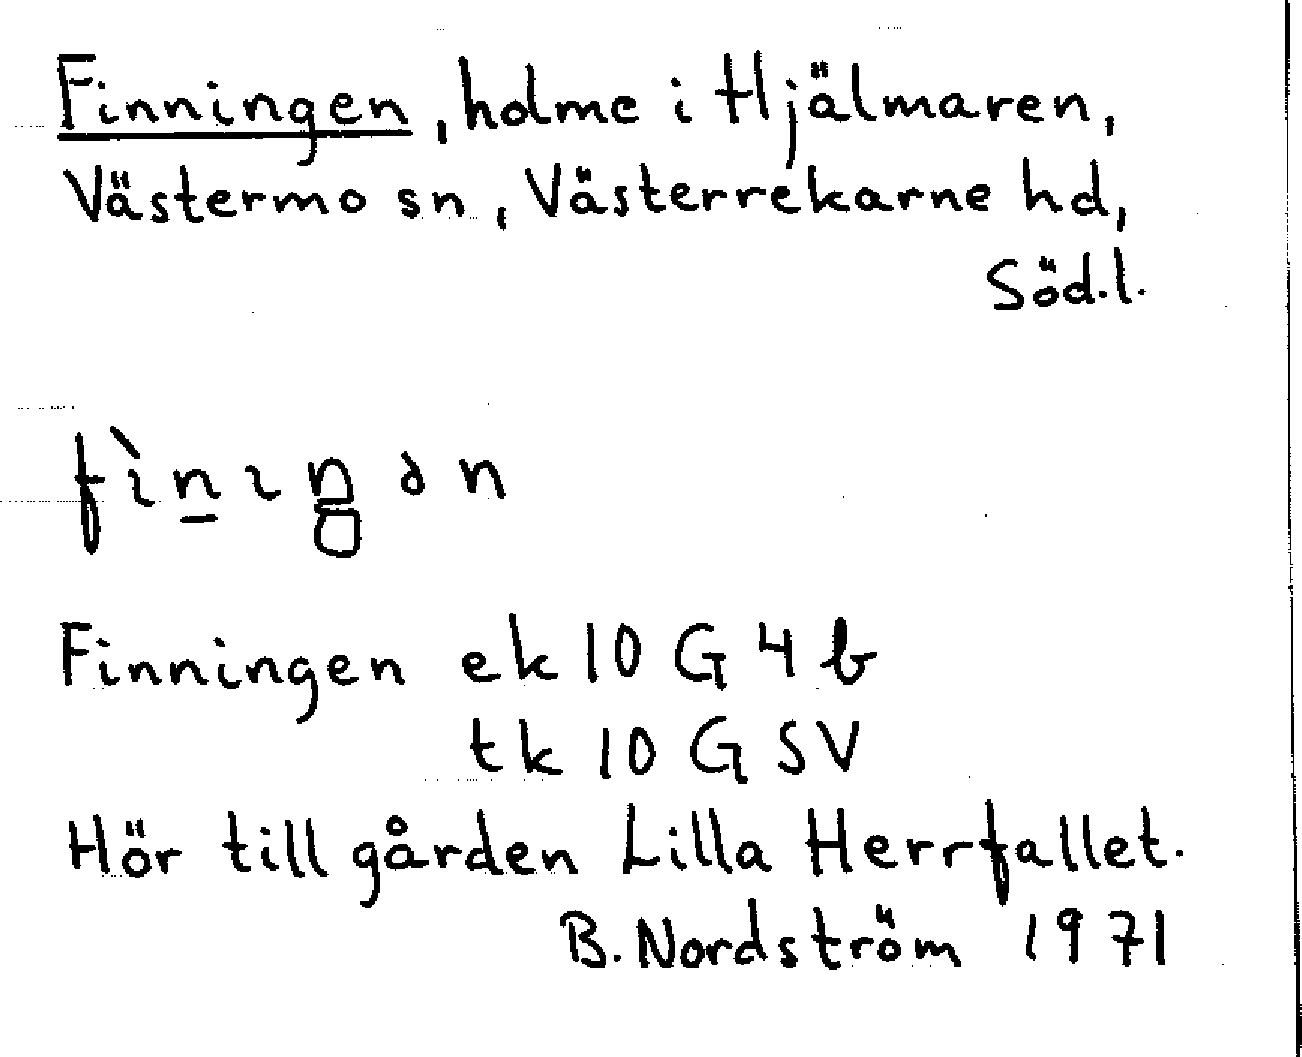 Finningen, holme i Hjälmaren,
Västermo sn, Västerrekarne hd,
Söd.l.
fìn̲ıŋən
Finningen ek 10 G 4 b
tk 10 G SV
Hör till gården Lilla Herrfallet.
B. Nordström 1971